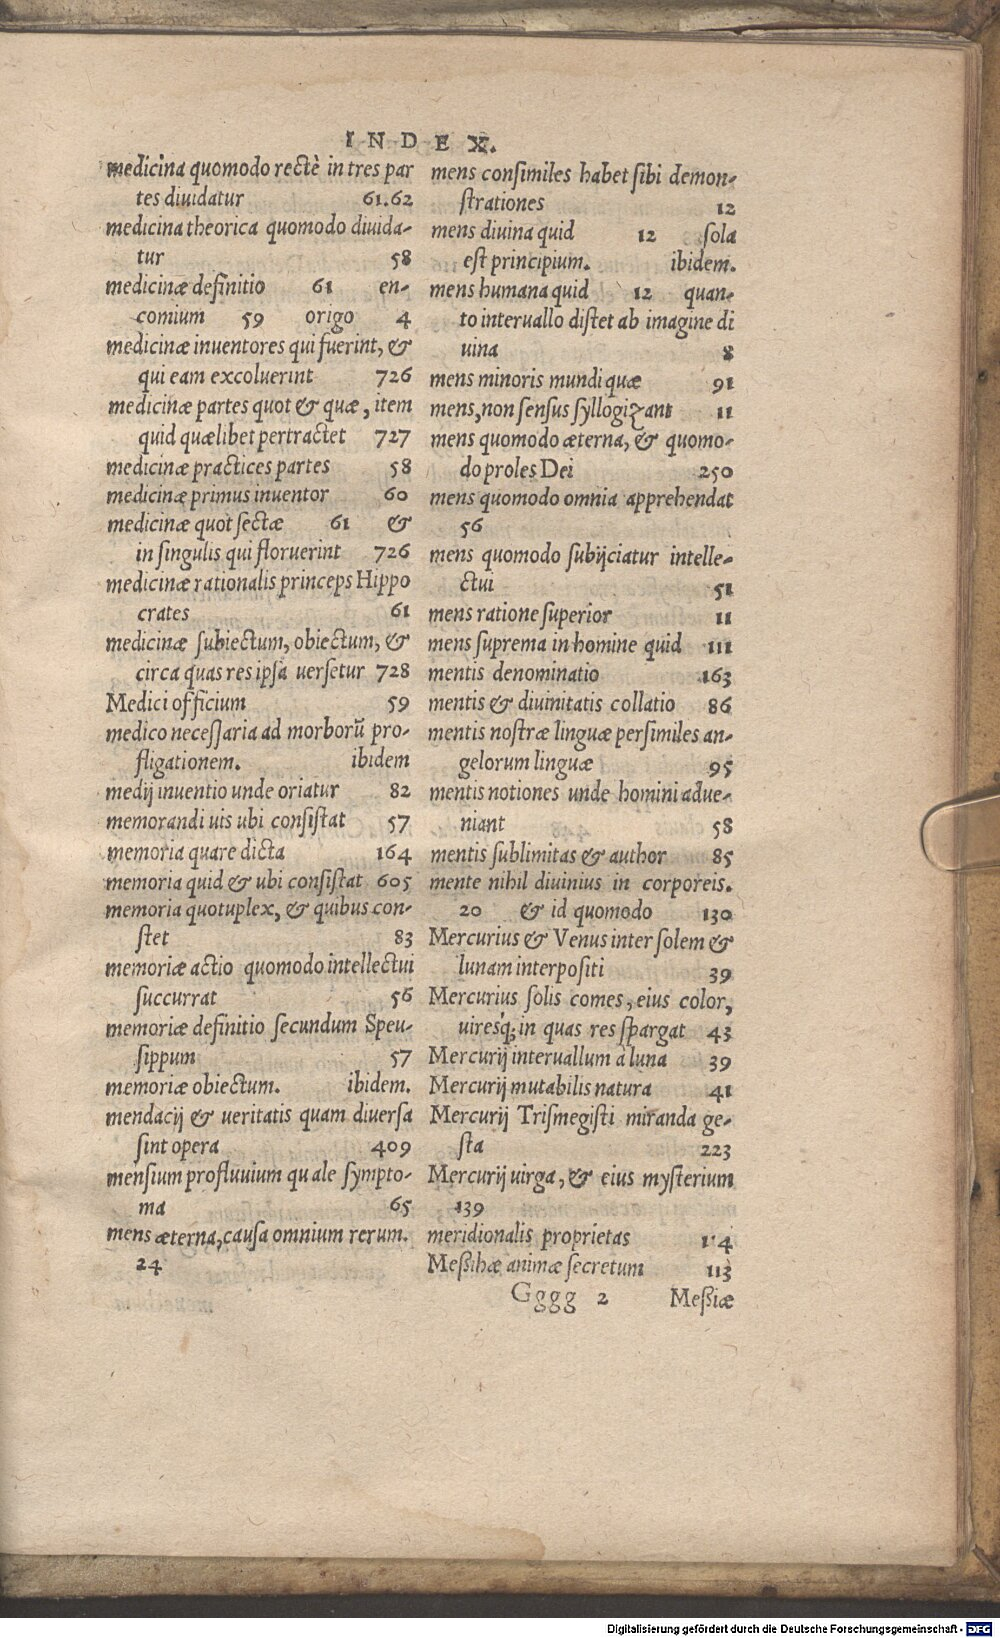 INDEX.
medicina quomodo rectè in tres par
tes diuidatur 61.62
medicina theorica quomodo diuida-
tur 58
medicinæ definitio 61 en-
comium 59 origo 4
medicinæ inuentores qui fuerint, &
qui eam excoluerint 726
medicinæ partes quot & quæ, item
quid quælibet pertractet 727
medicinæ practices partes 58
medicinæ primus inuentor 60
medicinæ quot sectæ 61 &
in singulis qui floruerint 726
medicinæ rationalis princeps Hippo
crates 61
medicinæ subiectum, obiectum, &
circa quas res ipsa uersetur 728
Medici officium 59
medico necessaria ad morborū pro-
fligationem. ibidem
medij inuentio unde oriatur 82
memorandi uis ubi consistat 57
memoria quare dicta 164
memoria quid & ubi consistat 605
memoria quotuplex, & quibus con-
stet 83
memoriæ actio quomodo intellectui
succurrat 56
memoriæ definitio secundum Speu-
sippum 57
memoriæ obiectum. ibidem.
mendacij & ueritatis quam diuersa
sint opera 409
mensium profluuium quale sympto-
ma 65
mens æterna, causa omnium rerum.
24
mens consimiles habet sibi demon-
strationes 12
mens diuina quid 12 sola
est principium. ibidem.
mens humana quid 12 quan-
to interuallo distet ab imagine di
uina 8
mens minoris mundi quæ 91
mens, non sensus syllogizant 11
mens quomodo æterna, & quomo-
do proles Dei 250
mens quomodo omnia apprehendat
56
mens quomodo subijciatur intelle-
ctui 51
mens ratione superior 11
mens suprema in homine quid 111
mentis denominatio 163
mentis & diuinitatis collatio 86
mentis nostræ linguæ persimiles an-
gelorum linguæ 95
mentis notiones unde homini adue-
niant 58
mentis sublimitas & author 85
mente nihil diuinius in corporeis.
20 & id quomodo 130
Mercurius & Venus inter solem &
lunam interpositi 39
Mercurius solis comes, eius color,
uiresq́; in quas res spargat 43
Mercurij interuallum à luna 39
Mercurij mutabilis natura 41
Mercurij Trismegisti miranda ge-
sta 223
Mercurij uirga, & eius mysterium
139
meridionalis proprietas
Meßihæ animæ secretum 113
Gggg 2 Meßiæ
Digitalisierung gefördert durch die Deutsche Forschungsgemeinschaft - DFG